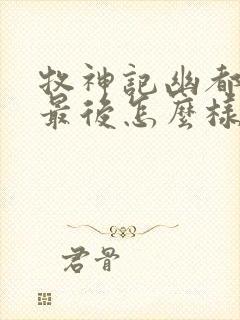 牧神記幽都
最後怎麼樣
君骨